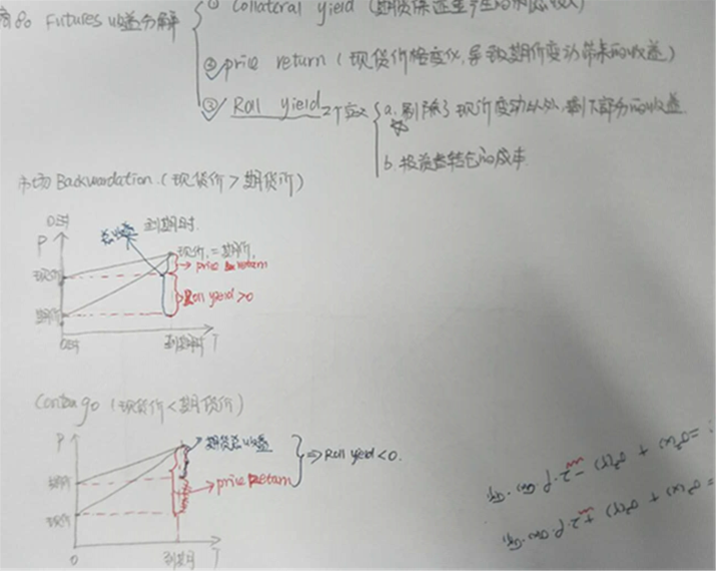 ① Collateral yield (期货保证金产生的利息收入)
商品 Futures 收益分解
② price return (现货价格变化,导致期价变动带来的收益)
③ Roll yield 2个定义
a. 剔除了现价变动以外,剩下部分的收益
b. 投资者转仓的成本
市场 Backwardation (现货价 > 期货价)
0时
P
总收益
到期时
现价 = 期价
现货价
price return
Roll yield > 0
期价
0时
到期时 T
Contango (现货价 < 期货价)
P
期货总收益
⇒ Roll yield < 0.
期价
price Return
现价
0
到期日 T